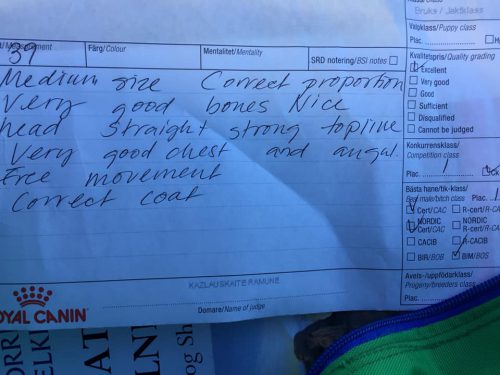 Bruks / Jaktklass
Valpklass/Puppy class
Plac.
Measurement
39
Färg/Colour
Mentalitet/Mentality
SRD notering/BSI notes
Kvalitetspris/Quality grading
Excellent
Very good
Good
Sufficient
Disqualified
Cannot be judged
Medium size Correct proportion
Very good bones Nice
head Straight strong topline
Very good chest and angul.
Free movement
Correct coat
Konkurrensklass/
Competition class
Plac. 1
Bästa hane/tik-klass/
Best male/bitch class Plac. 1
Cert/CAC R-cert/R-CA
NORDIC Cert/CAC NORDIC R-cert/R-CA
CACIB R-CACIB
BIR/BOB BIM/BOS
Avels-/uppfödarklass/
Progeny/breeders class
Plac.
KAZLAUSKAITE RAMUNE
Domare/Name of judge
ROYAL CANIN
og Sh